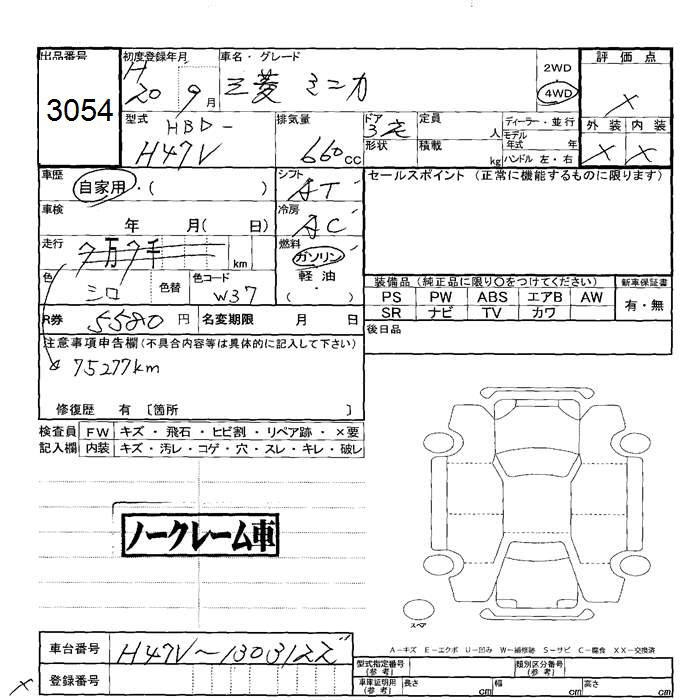 出品番号
3054
初度登録年月
H
20 9月
車名・グレード
三菱 ミニカ
2WD
4WD
評価点
×
外装 内装
× ×
型式 HBD-
H47V
排気量
660cc
ドア
3
形状
定員
人
積載
kg
ディーラー・並行
モデル
年式 年
ハンドル 左・右
車歴
自家用・( )
シフト
AT
セールスポイント (正常に機能するものに限ります)
車検
年 月( 日)
冷房
AC
走行
7万7千
km
燃料
ガソリン
軽油・
( )
色
シロ
色替
色コード
W37
装備品 (純正品に限り○をつけてください)
新車保証書
PS PW ABS エアB AW
SR ナビ TV カワ
有・無
R券 5580円
名変期限 月 日
後日品
注意事項申告欄(不具合内容等は具体的に記入して下さい)
75277km
修復歴 有 〔箇所 〕
検査員
記入欄
FW キズ・飛石・ヒビ割・リペア跡・×要
内装 キズ・汚レ・コゲ・穴・スレ・キレ・破レ
ノークレーム車
スペア
A-キズ E-エクボ U-凹み W-補修跡 S-サビ C-腐食 XX-交換済
車台番号
H47V~1303122
登録番号
×
型式指定番号
(参考)
類別区分番号
(参考)
車庫証明用
(参考)
長さ cm
幅 cm
高さ cm